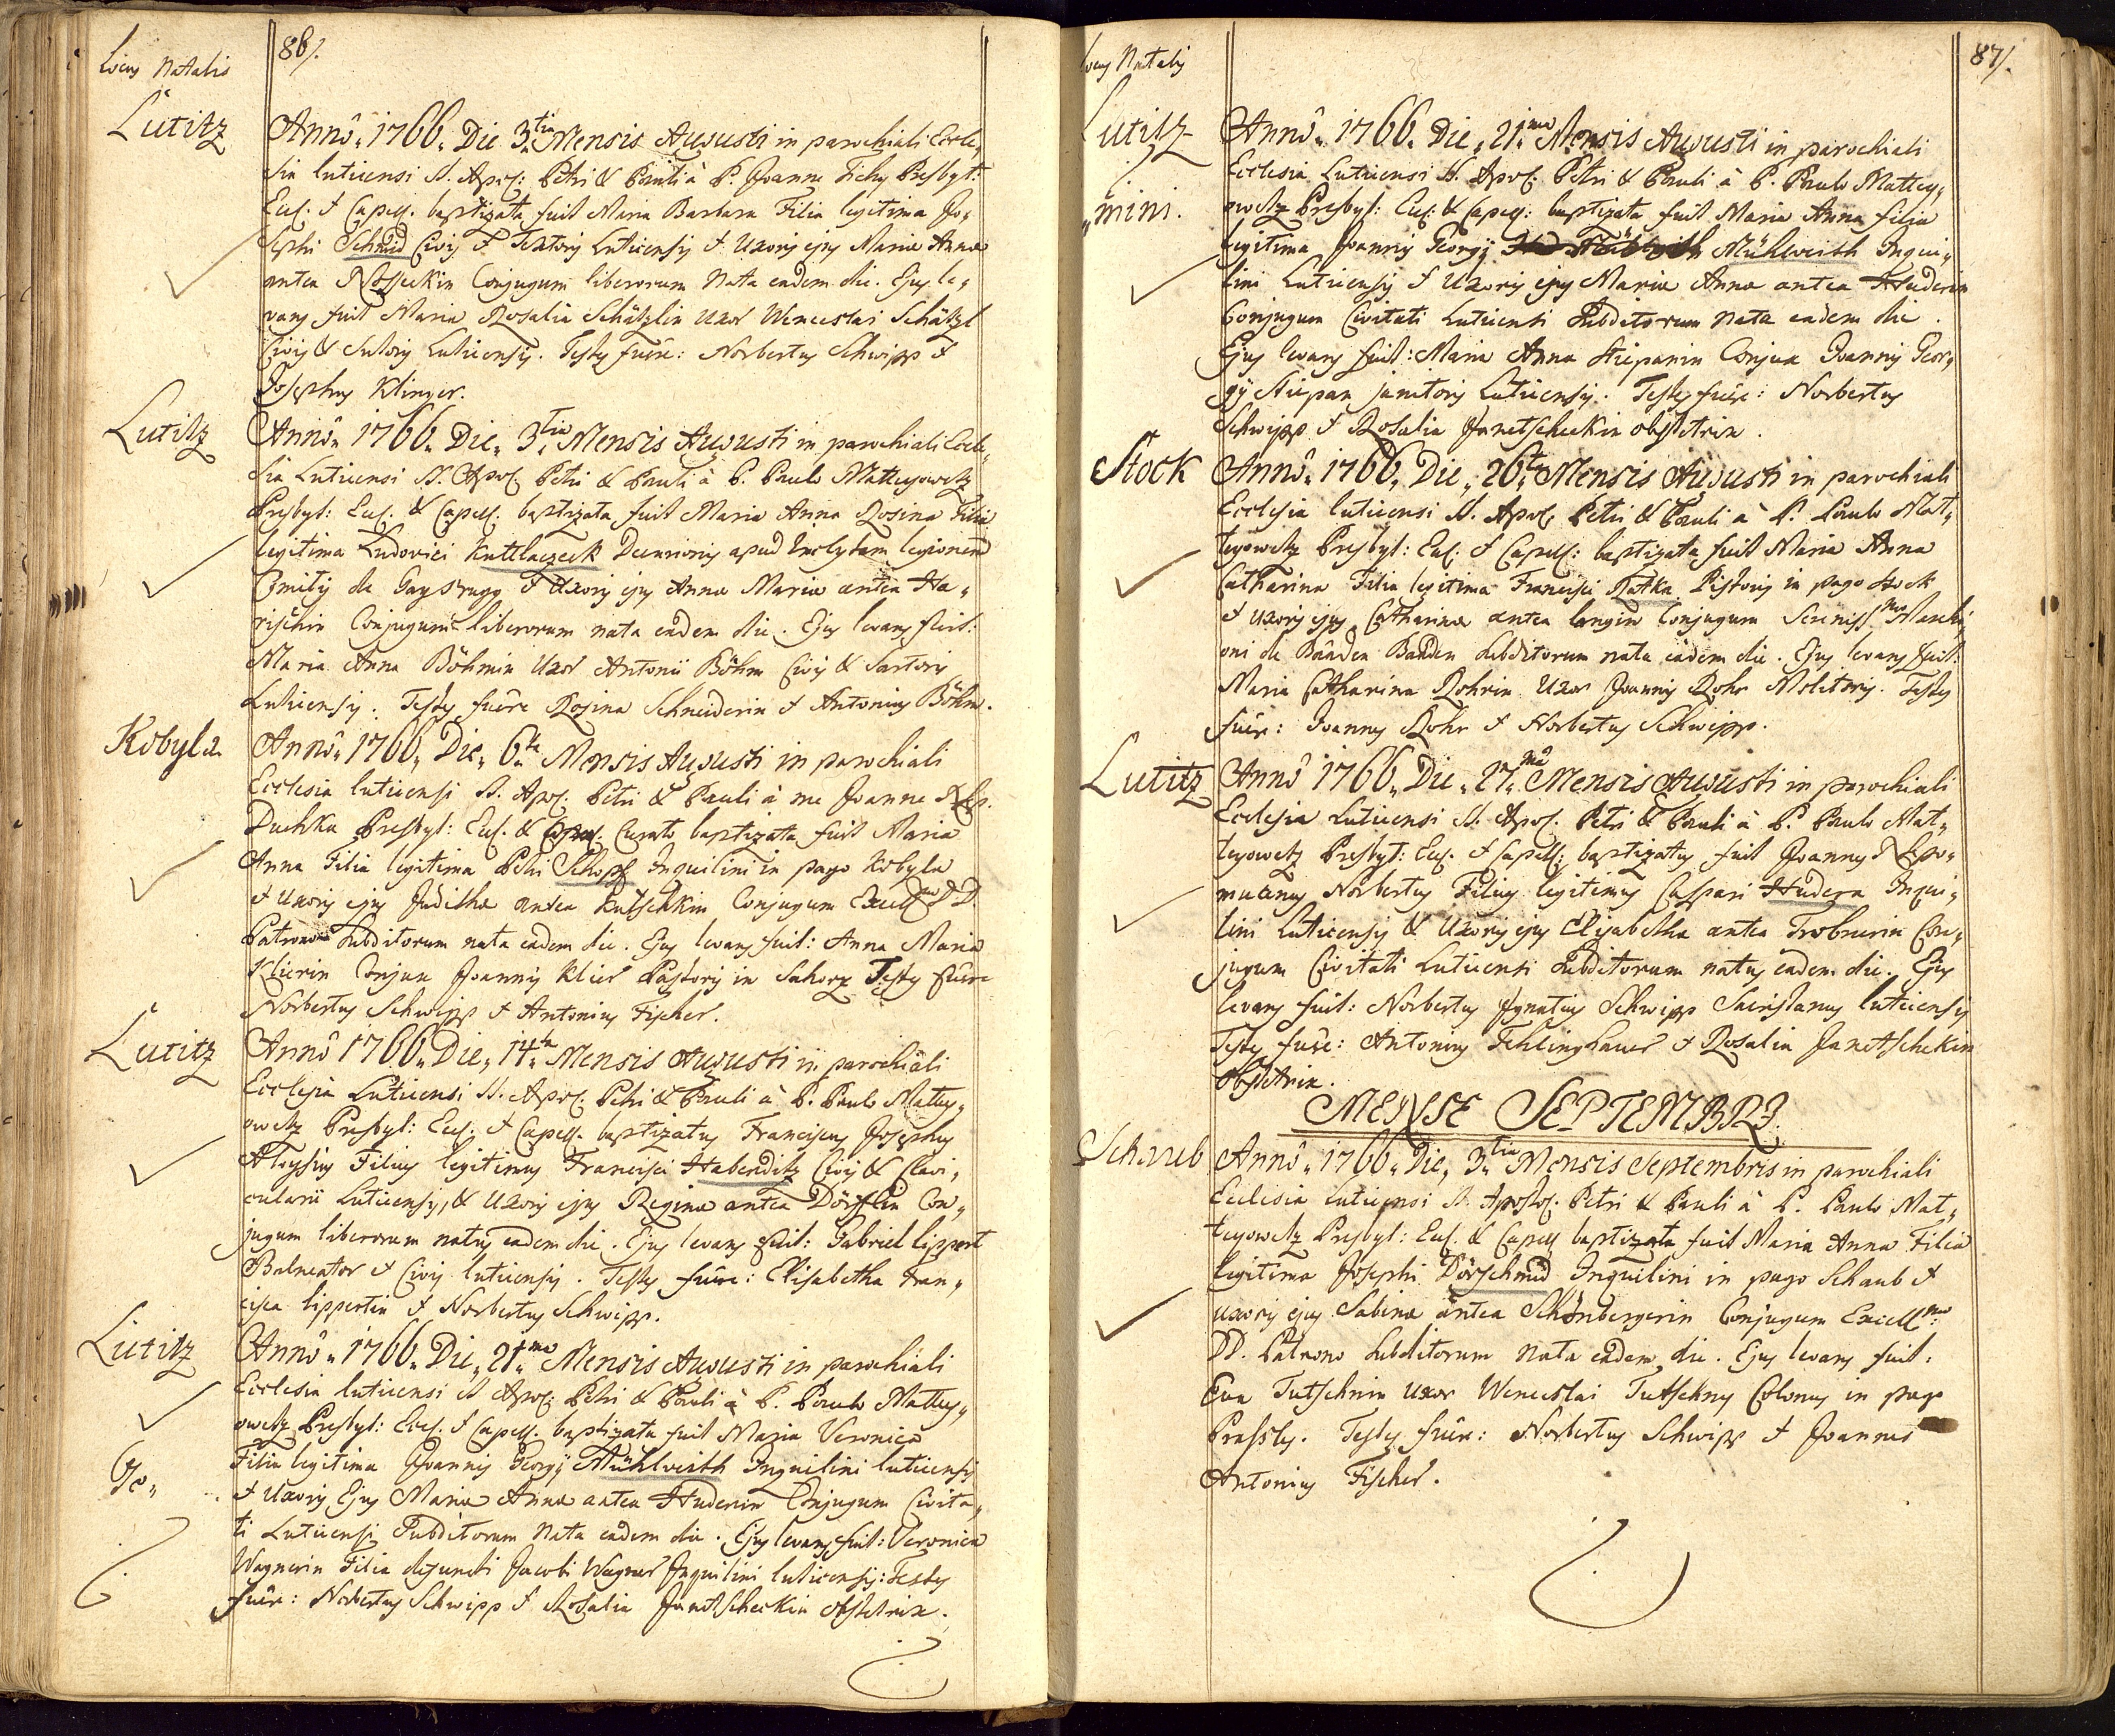 Locus Natalis
86/.
Lutitz
Annô 1766. Die 3.tia Mensis Augusti in parochiali Eccle,
sia luticensi SS. Apos: Petri & Pauli à P. Joanne Tichy Presbyt:
Eccl. & Capell. baptizata fuit Maria Barbara Filia legitima Jo,
sephi Schmid Civis & Textoris Luticensis & Uxoris ejus Mariæ Annæ
antea Conjugum liberorum Nata eadem die. Ejus le,
vans fuit Maria Rosalia Schätzlin Uxor Wenceslai Schätzl
Civis & Sutoris Luticensis. Testes fuêre: Norbertus Schwipp &
Josephus Klinger.
Lutitz
Annô 1766. Die 3.tia Mensis Augusti in parochiali Eccle,
sia Luticensi SS. Apos: Petri & Pauli à P. Paulo Matteyowetz
Presbyt: Eccl. & Capell. baptizata fuit Maria Anna Rosina Filia
legitima Ludovici Kuttlaczeck Decurionis apud Inclytam legionem
Comitis de & Uxoris ejus Annæ Mariæ antea Ha,
rischin Conjugum liberorum nata eadem die. Ejus levans fuit:
Maria Anna Böhmin Uxor Antonii Böhm Civis & Sartoris
Luticensis. Testes fuêre Rosina Schneiderin & Antonius Böhm.
Kobyla
Annô 1766. Die 6.ta Mensis Augusti in parochiali
Ecclesia luticensi SS. Apos: Petri & Pauli à me Joanne Nep.
Duchka Presbyt: Eccl. & Curato baptizata fuit Maria
Anna Filia legitima Petri Schopf Inquilini in pago Kobyla
& Uxoris ejus Judithæ antea Kutschkin Conjugum Excell.mo D D.
Patrono Subditorum nata eadem die. Ejus levans fuit: Anna Maria
Klierin Conjux Joannis Klier Pastoris in Sahorz Testes fuêre
Norbertus Schwipp & Antonius Fischer.
Lutitz
Annô 1766. Die 14.ta Mensis Augusti in parochiali
Ecclesia Luticensi SS. Apos: Petri & Pauli à P. Paulo Mattey,
owetz Presbyt: Eccl. & Capell. baptizatus Franciscus Josephus
Aloysius Filius legitimus Francisci Habenditz Civis & Clavi,
cularii Luticensis, & Uxoris ejus Reginæ antea Dörfflin Con,
jugum liberorum natus eadem die. Ejus levans fuit: Gabriel lippert
Balneator & Civis luticensis. Testes fuêre: Elisabetha Fran,
cisca lippertin & Norbertus Schwipp.
Lutitz
Annô 1766. Die 21.ma Mensis Augusti in parochiali
Ecclesia luticensi SS Apos: Petri & Pauli à P. Paulo Mattey,
owetz Presbyt: Eccl. & Capell. baptizata fuit Maria Veronica
Filia legitima Joannis Georgij Mühlwerth Inquilini luticensis
Ge,
& Uxoris Ejus Mariæ Annæ antea Huderin Conjugum Civita,
ti Luticensi Subditorum Nata eadem die. Ejus levans fuit: Veronica
Wagnerin Filia defuncti Jacobi Wagner Inquilini luticensis: Testes
fuêre: Norbertus Schwipp & Rosalia Janetscheckin obstetrix.
Locus Natalis
87/.
Lutitz
Annô 1766. Die 21.ma Mensis Augusti in parochiali
Ecclesia Luticensi SS. Apos: Petri & Pauli à P. Paulo Mattey,
,,mini.
owetz Presbyt: Eccl: & Capell: baptizata fuit Maria Anna filia
legitima Joannis Georgij Mühlwerth Inqui,
lini Luticensis & Uxoris ejus Mariæ Annæ antea Huderin
Conjugum Civitati Luticensi Subditorum Nata eadem die.
Ejus levans fuit: Maria Anna Stiepanin Conjux Joannis Geor,
gij Stiepan janitoris Luticensis. Testes fuêre: Norbertus
Schwipp & Rosalia Janetscheckin obstetrix.
Stock
Annô 1766. Die 26.ta Mensis Augusti in parochiali
Ecclesia luticensi SS. Apos: Petri & Pauli à P. Paulo Mat,
teyowetz Presbyt: Eccl: & Capell: baptizata fuit Maria Anna
Catharina Filia legitima Francisci Ratka Pistoris in pago Stock
& uxoris ejus Catharinæ antea langin Conjugum Sereniss.mo Marchi,
oni de Baaden Baaden Subditorum nata eadem die. Ejus levans fuit:
Maria Catharina Rohrin Uxor Joannis Rohr Molitoris. Testes
fuêre: Joannes Rohr & Norbertus Schwipp.
Lutitz
Annô 1766. Die 27.ma Mensis Augusti in parochiali
Ecclesia Luticensi SS. Apos: Petri & Pauli à P. Paulo Mat,
teyowetz Presbyt: Eccl. & Capell: baptizatus fuit Joannes Nepo,
mucenus Norbertus Filius legitimus Caspari Hudera Inqui,
lini Luticensis & Uxoris ejus Elisabetha antea Trobnerin Con,
jugum Civitati Luticensi Subditorum natus eadem die. Ejus
levans fuit: Norbertus Ignatius Schwipp Sacristanus luticensis
Testes fuêre: Antonius Fehlinghauer & Rosalia Janetschekin
obstetrix.
MENSE SEPTEMBRJ.
Schaub
Annô 1766. Die 3.tia Mensis Septembris in parochiali
Ecclesia Luticensi SS. Apostol: Petri & Pauli à P. Paulo Mat,
teyowetz Presbyt: Eccl. & Capell baptizata fuit Maria Anna Filia
legitima Josephi Dörschmid Inquilini in pago Schaub &
uxoris ejus Sabinæ antea Schönbergerin Conjugum Excell.mo
DD. Patrono Subditorum Nata eadem die. Ejus levans fuit:
Eva Tutschnin Uxor Wenceslai Tutschny Colonus in pago
Prassles. Testes fuêre: Norbertus Schwipp & Joannes
Antonius Fischer.